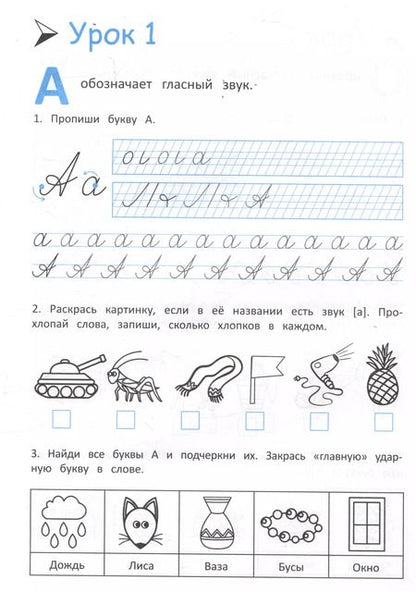 Урок 1
А обозначает гласный звук.
1. Пропиши букву А.
А а
о ι о ι а
Л l Л l А
а а а а а а а а а а а а а а
А А А А А А А А А А А
2. Раскрась картинку, если в её названии есть звук [а]. Про-
хлопай слова, запиши, сколько хлопков в каждом.
3. Найди все буквы А и подчеркни их. Закрась «главную» удар-
ную букву в слове.
Дождь Лиса Ваза Бусы Окно